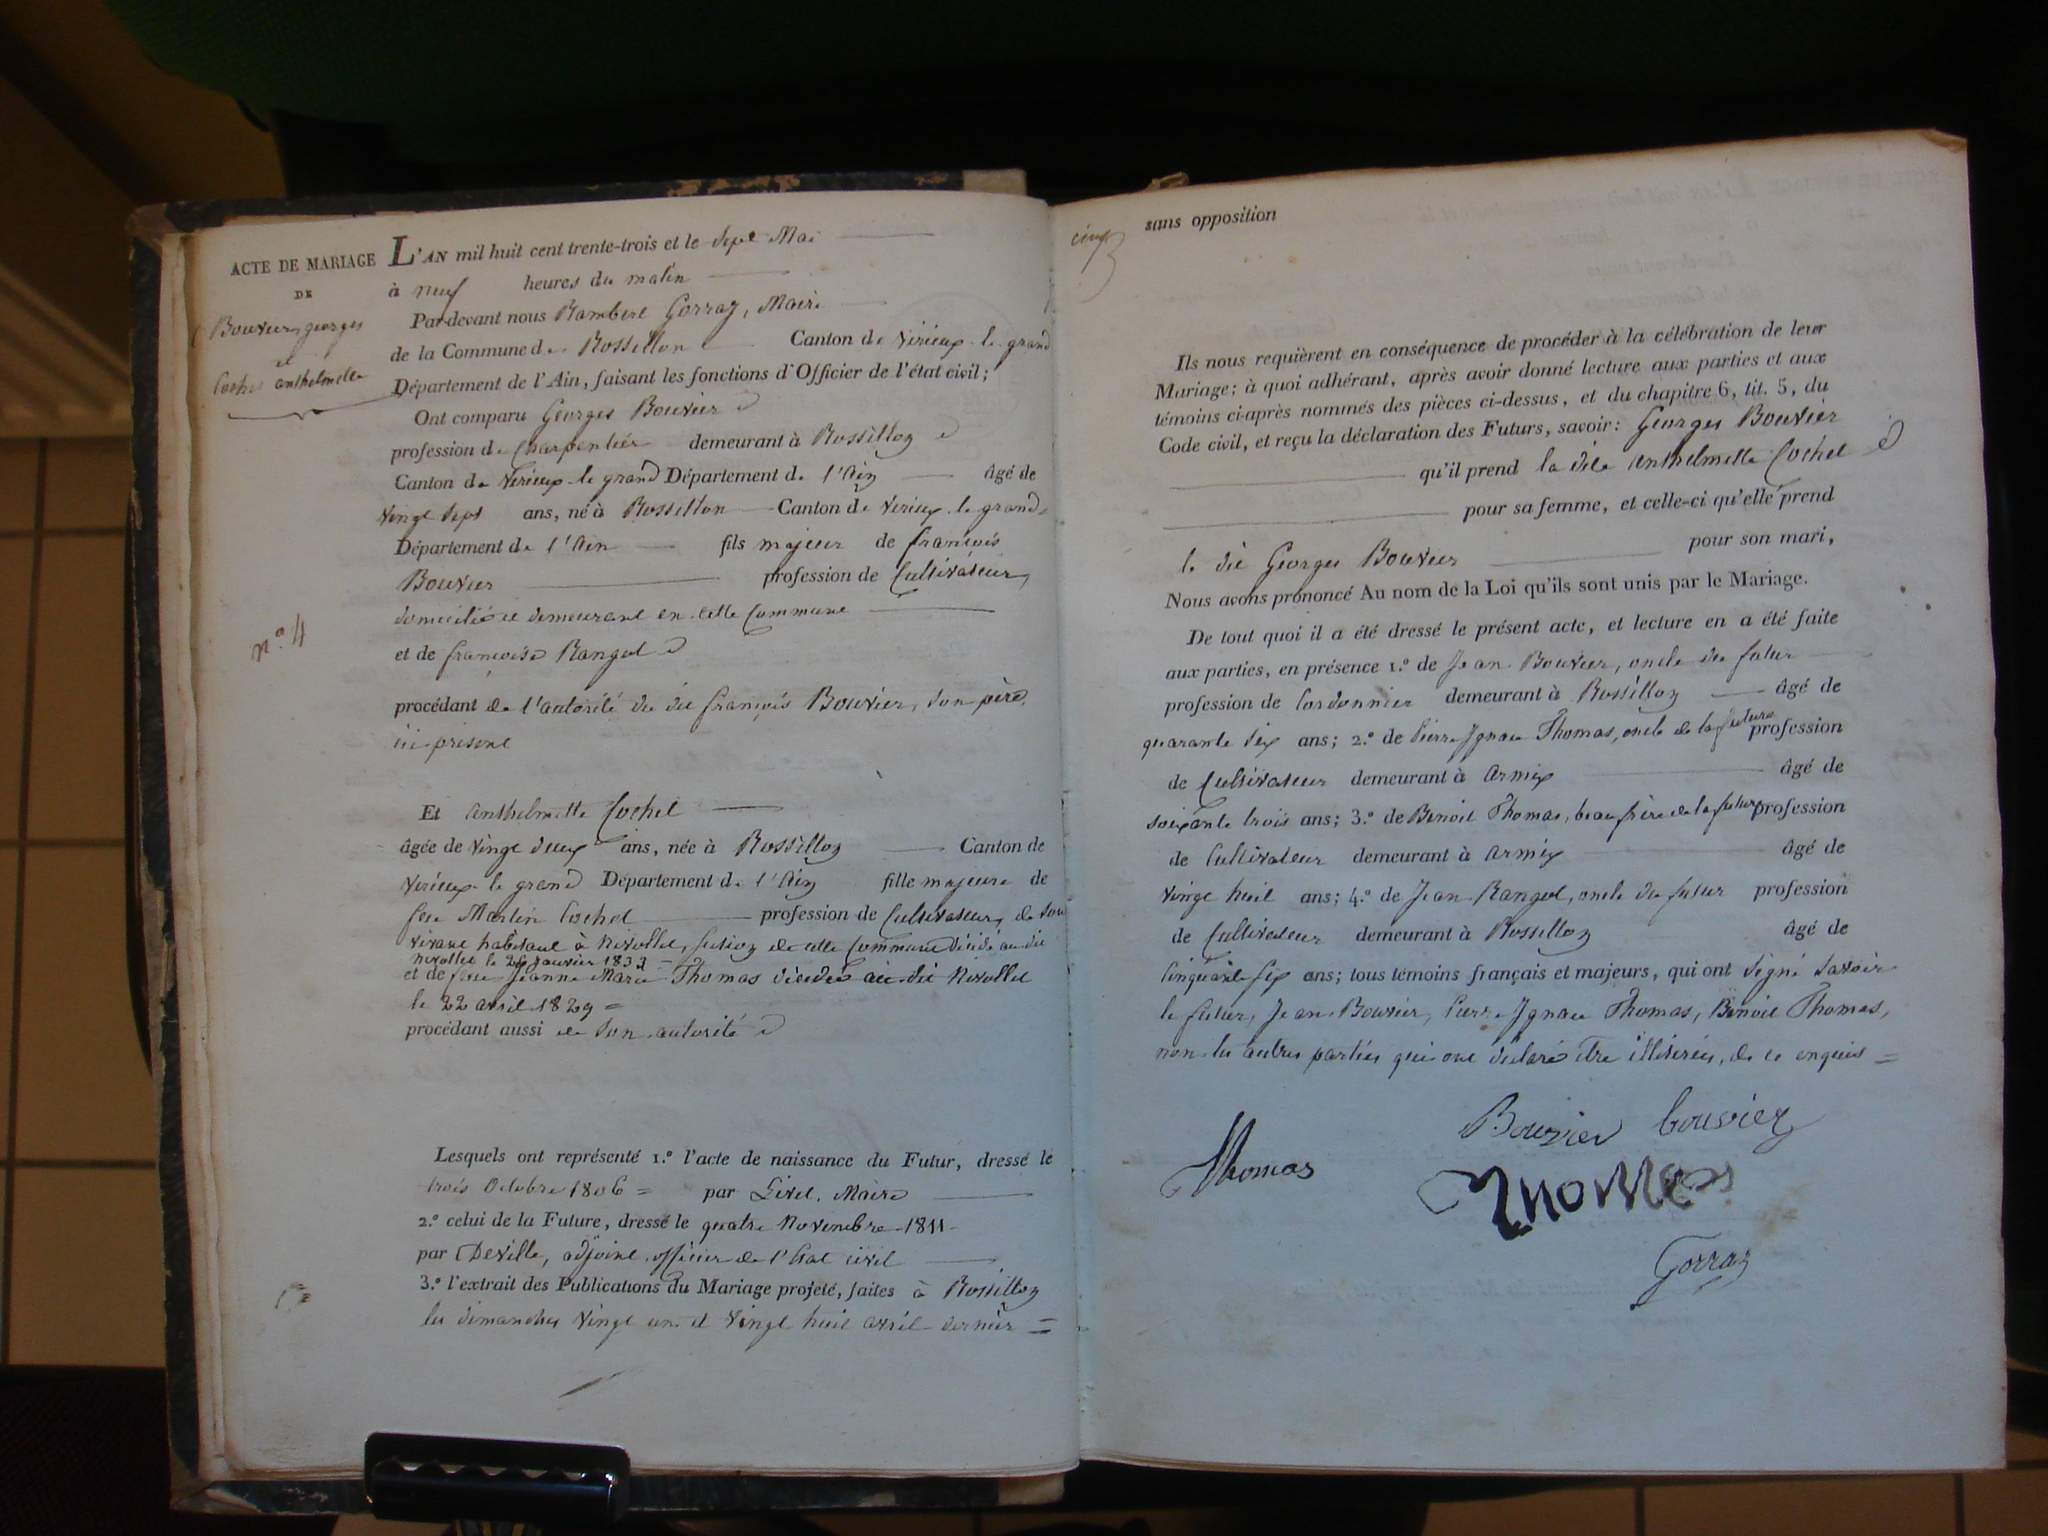 ACTE DE MARIAGE
DE
Bouvier, georges
et
Cochet anthelmette
n.º 4
L'AN mil huit cent trente-trois et le sept Mai
à neuf heures du matin
Par-devant nous Rambert Gorraz, Maire
de la Commune de Rossillon Canton de Virieux-le-grand
Département de l'Ain, faisant les fonctions d'Officier de l'état civil;
Ont comparu Georges Bouvier
profession de Charpentier demeurant à Rossillon
Canton de Virieux-le-grand Département de l'Ain âgé de
vingt sept ans, né à Rossillon Canton de Virieux-le-grand
Département de l'Ain fils majeur de françois
Bouvier profession de Cultivateur,
domicilié et demeurant en cette Commune
et de françoise Rangot
procédant de l'autorité du dit françois Bouvier, son père,
ici présent
Et anthelmette Cochet
âgée de vingt deux ans, née à Rossillon Canton de
Virieux-le-grand Département de l'Ain fille majeure de
feu Martin Cochet profession de Cultivateur, de son
vivant habitant à Nivollet, section de cette Commune décédé au dit
Nivollet le janvier
et de feue Jeanne Marie Thomas décédée au dit Nivollet
le 22 avril 1829 =
procédant aussi de son autorité
Lesquels ont représenté 1.º l'acte de naissance du Futur, dressé le
trois Octobre 1806 = par Livet, Maire
2.º celui de la Future, dressé le quatre Novembre 1811
par Deville, adjoint officier de l'état civil
3.º l'extrait des Publications du Mariage projeté, faites à Rossillon
les dimanches vingt un et vingt huit avril dernier =
cinq
sans opposition
Ils nous requièrent en conséquence de procéder à la célébration de leur
Mariage; à quoi adhérant, après avoir donné lecture aux parties et aux
témoins ci-après nommés des pièces ci-dessus, et du chapitre 6, tit. 5, du
Code civil, et reçu la déclaration des Futurs, savoir: Georges Bouvier
qu'il prend la dite anthelmette Cochet
pour sa femme, et celle-ci qu'elle prend
le dit Georges Bouvier pour son mari,
Nous avons prononcé Au nom de la Loi qu'ils sont unis par le Mariage.
De tout quoi il a été dressé le présent acte, et lecture en a été faite
aux parties, en présence 1.º de Jean Bouvier, oncle du futur
profession de Cordonnier demeurant à Rossillon âgé de
quarante six ans; 2.º de Pierre Ignace Thomas, oncle de la future profession
de Cultivateur demeurant à Armix âgé de
soixante trois ans; 3.º de Benoit Thomas, beau frère de la future profession
de Cultivateur demeurant à Armix âgé de
vingt huit ans; 4.º de Jean Rangot, oncle du futur profession
de Cultivateur demeurant à Rossillon âgé de
Cinquante six ans; tous témoins français et majeurs, qui ont signé savoir
le futur, Jean Bouvier, Pierre Ignace Thomas, Benoit Thomas,
non les autres parties qui ont déclaré être illitérées, de ce enquis =
Bouvier bouvier
Thomas
Thomas
Gorraz